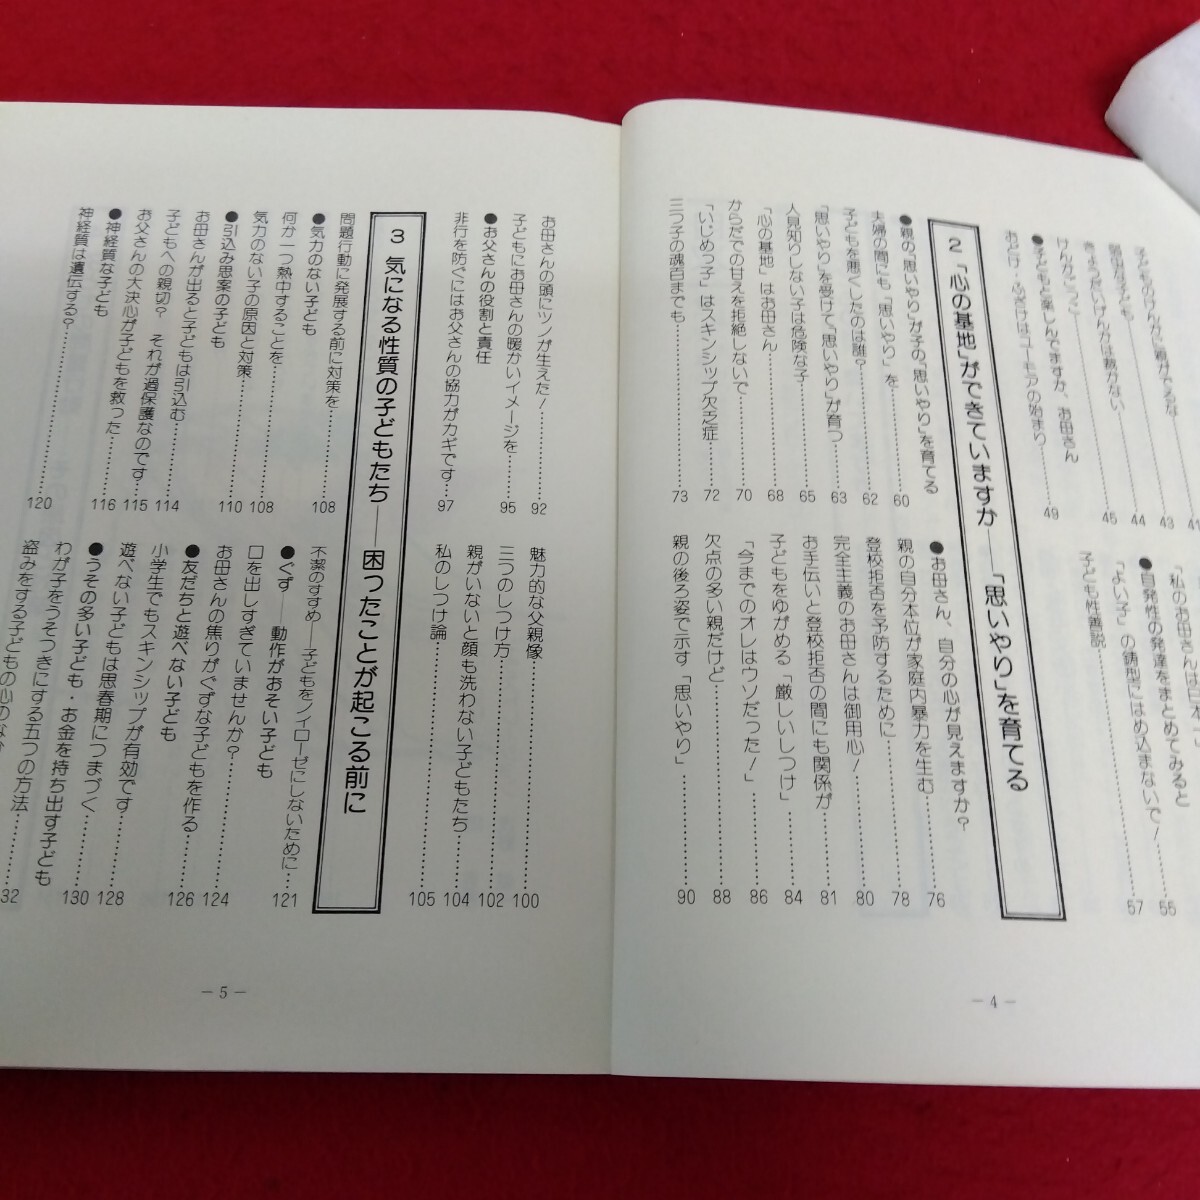 子どものけんかに親がでるな……43
弱虫な子ども……44
きょうだいげんかは裁かない……45
けんかごっこ
●子どもと楽しんでますか、お母さん
おどけ・ふざけはユーモアの始まり……49
「私のお母さんは日本一」
●自発性の発達をまとめてみると……55
「よい子」の鋳型にはめ込まないで！……57
子ども性善説
2 「心の基地」ができていますか──「思いやり」を育てる
●親の「思いやり」が子の「思いやり」を育てる
夫婦の間にも「思いやり」を……60
子どもを悪くしたのは誰？……62
「思いやり」を受けて、「思いやり」が育つ……63
人見知りしない子は危険な子……65
「心の基地」はお母さん……68
からだでの甘えを拒絶しないで……70
「いじめっ子」はスキンシップ欠乏症……72
三つ子の魂百までも……73
●お母さん、自分の心が見えますか？
親の自分本位が家庭内暴力を生む……76
登校拒否を予防するために……78
完全主義のお母さんは御用心！……80
お手伝いと登校拒否の間にも関係が……81
子どもをゆがめる「厳しいしつけ」……84
「今までのオレはウソだった！」……86
欠点の多い親だけど……88
親の後ろ姿で示す「思いやり」……90
― 4 ―
お母さんの頭にツノが生えた！……92
子どもにお母さんの暖かいイメージを……95
●お父さんの役割と責任
非行を防ぐにはお父さんの協力がカギです……97
魅力的な父親像……100
三つのしつけ方……102
親がいないと顔も洗わない子どもたち……104
私のしつけ論……105
3 気になる性質の子どもたち──困ったことが起こる前に
問題行動に発展する前に対策を……108
●気力のない子ども
何か一つ熱中することを……108
気力のない子の原因と対策……110
●引込み思案の子ども
お母さんが出ると子どもは引込む……114
子どもへの親切？　それが過保護なのです……115
お父さんの大決心が子どもを救った……116
●神経質な子ども
神経質は遺伝する？……120
不潔のすすめ──子どもをノイローゼにしないために……121
●ぐず──動作がおそい子ども
口を出しすぎていませんか？……124
お母さんの焦りがぐずな子どもを作る……126
●友だちと遊べない子ども
小学生でもスキンシップが有効です……128
遊べない子どもは思春期につまづく……130
●うその多い子ども・お金を持ち出す子ども
わが子をうそつきにする五つの方法……32
盗みをする子どもの心のなか
― 5 ―